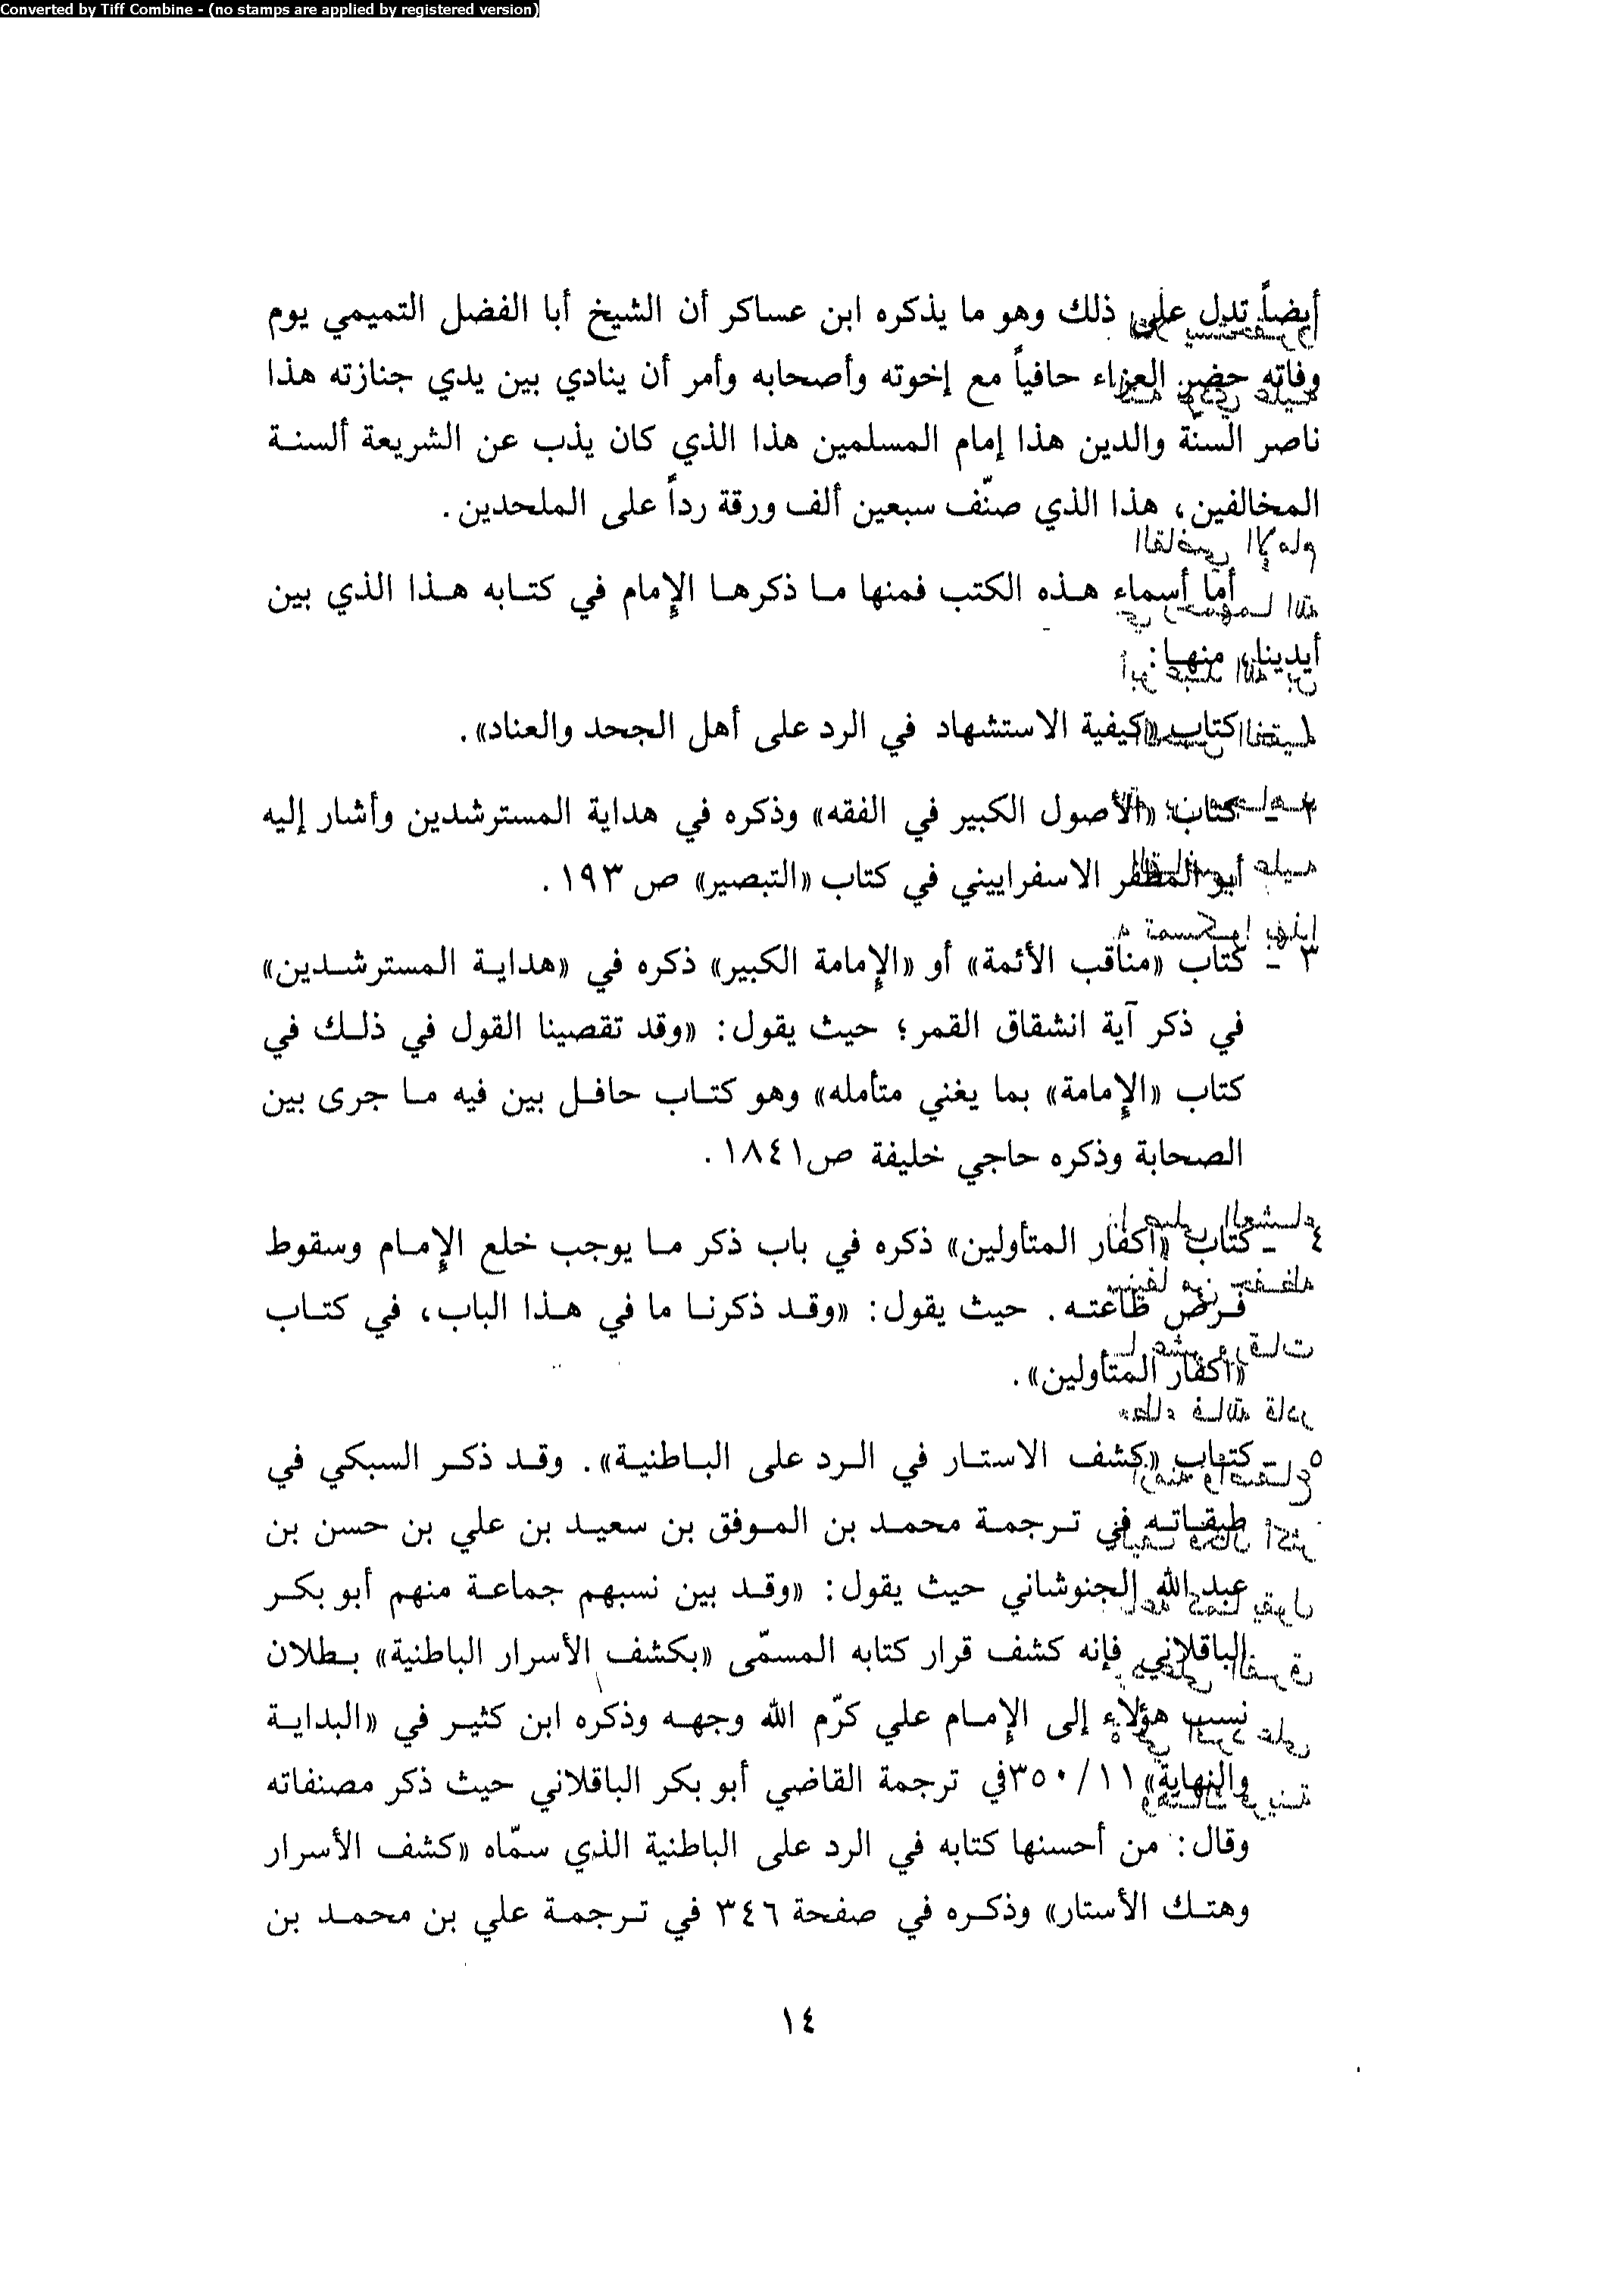 Converted by Tiff Combine - (no stamps are applied by registered version)
أيضاً تدل على ذلك وهو ما يذكره ابن عساكر أن الشيخ أبا الفضل التميمي يوم
وفاته حضر العزاء حافياً مع إخوته وأصحابه وأمر أن ينادي بين يدي جنازته هذا
ناصر السنّة والدين هذا إمام المسلمين هذا الذي كان يذب عن الشريعة ألسنة
المخالفين، هذا الذي صنّف سبعين ألف ورقة رداً على الملحدين.
أما أسماء هذه الكتب فمنها ما ذكرها الإمام في كتابه هذا الذي بين
أيدينا، منها:
١ - كتاب «كيفية الاستشهاد في الرد على أهل الجحد والعناد».
٢ - كتاب «الأصول الكبير في الفقه» وذكره في هداية المسترشدين وأشار إليه
أبو المظفر الاسفراييني في كتاب «التبصير» ص ١٩٣.
٣ - كتاب «مناقب الأئمة» أو «الإمامة الكبير» ذكره في «هداية المسترشدين»
في ذكر آية انشقاق القمر؛ حيث يقول: «وقد تقصينا القول في ذلك في
كتاب «الإمامة» بما يغني متأمله» وهو كتاب حافل بين فيه ما جرى بين
الصحابة وذكره حاجي خليفة ص١٨٤١.
٤ - كتاب «اكفار المتأولين» ذكره في باب ذكر ما يوجب خلع الإمام وسقوط
فرض طاعته. حيث يقول: «وقد ذكرنا ما في هذا الباب، في كتاب
«اكفار المتأولين».
٥ - كتاب «كشف الاستار في الرد على الباطنية». وقد ذكر السبكي في
طبقاته في ترجمة محمد بن الموفق بن سعيد بن علي بن حسن بن
عبد الله الجنوشاني حيث يقول: «وقد بين نسبهم جماعة منهم أبو بكر
الباقلاني فإنه كشف قرار كتابه المسمّى «بكشف الأسرار الباطنية» بطلان
نسب هؤلاء إلى الإمام علي كرّم الله وجهه وذكره ابن كثير في «البداية
والنهاية» ٣٥٠/١١في ترجمة القاضي أبو بكر الباقلاني حيث ذكر مصنفاته
وقال: من أحسنها كتابه في الرد على الباطنية الذي سمّاه «كشف الأسرار
وهتك الأستار» وذكره في صفحة ٣٤٦ في ترجمة علي بن محمد بن
١٤